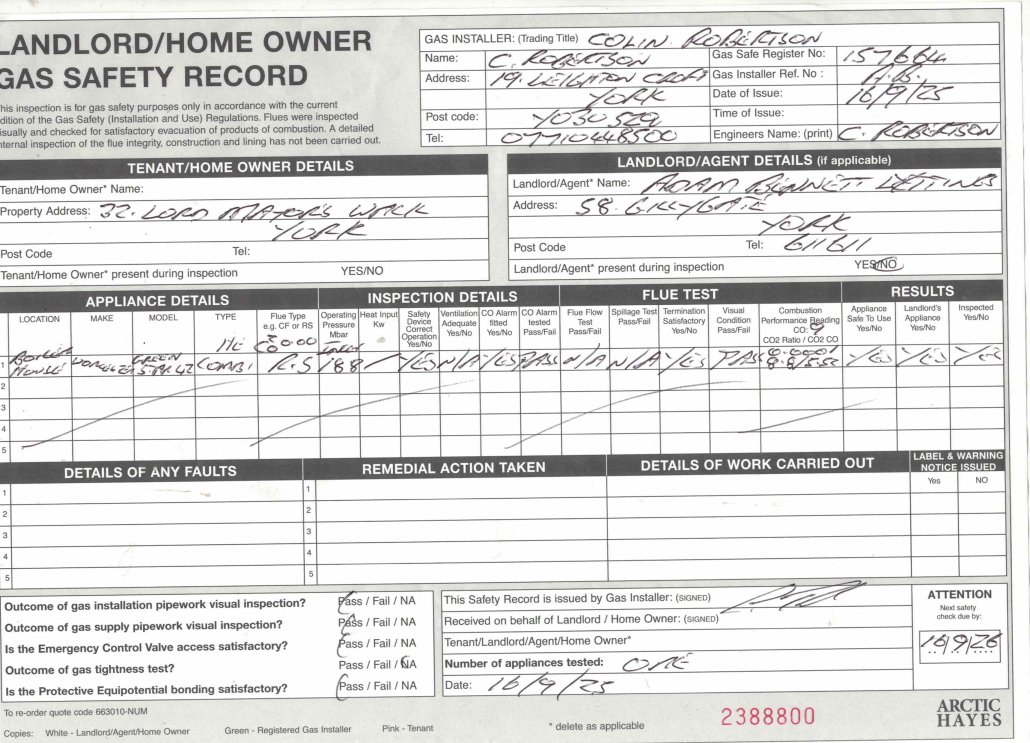 LANDLORD/HOME OWNER
GAS SAFETY RECORD
his inspection is for gas safety purposes only in accordance with the current
dition of the Gas Safety (Installation and Use) Regulations. Flues were inspected
isually and checked for satisfactory evacuation of products of combustion. A detailed
nternal inspection of the flue integrity, construction and lining has not been carried out.
GAS INSTALLER: (Trading Title) COLIN ROBERTSON
Name: C. ROBERTSON Gas Safe Register No: 157664
Address: 19. LEIGHTON CROFT Gas Installer Ref. No :
YORK Date of Issue: 16/9/25
Post code: YO30 5ZQ Time of Issue:
Tel: 07710448500 Engineers Name: (print) C. ROBERTSON
TENANT/HOME OWNER DETAILS
Tenant/Home Owner* Name:
Property Address: 32. LORD MAYORS WALK
YORK
Post Code Tel:
Tenant/Home Owner* present during inspection YES/NO
LANDLORD/AGENT DETAILS (if applicable)
Landlord/Agent* Name: ADAM BENNETT LETTINGS
Address: 58. GILLYGATE
YORK
Post Code Tel: 611611
Landlord/Agent* present during inspection YES/NO
APPLIANCE DETAILS INSPECTION DETAILS FLUE TEST RESULTS
LOCATION MAKE MODEL TYPE Flue Type e.g. CF or RS Operating Pressure Mbar Heat Input Kw Safety Device Correct Operation Yes/No Ventilation Adequate Yes/No CO Alarm fitted Yes/No CO Alarm tested Pass/Fail Flue Flow Test Pass/Fail Spillage Test Pass/Fail Termination Satisfactory Yes/No Visual Condition Pass/Fail Combustion Performance Reading CO: CO2 Ratio / CO2 CO Appliance Safe To Use Yes/No Landlord's Appliance Yes/No Inspected Yes/No
HE
1 BOILER HOUSE WORCESTER GREENSTAR 42 COMBI R.S YES N/A YES PASS N/A N/A YES PASS YES YES YES
2
3
4
5
DETAILS OF ANY FAULTS REMEDIAL ACTION TAKEN DETAILS OF WORK CARRIED OUT LABEL & WARNING NOTICE ISSUED
Yes NO
1 1
2 2
3 3
4 4
5 5
Outcome of gas installation pipework visual inspection? Pass / Fail / NA
Outcome of gas supply pipework visual inspection? Pass / Fail / NA
Is the Emergency Control Valve access satisfactory? Pass / Fail / NA
Outcome of gas tightness test? Pass / Fail / NA
Is the Protective Equipotential bonding satisfactory? Pass / Fail / NA
This Safety Record is issued by Gas Installer: (SIGNED)
Received on behalf of Landlord / Home Owner: (SIGNED)
Tenant/Landlord/Agent/Home Owner*
Number of appliances tested: ONE
Date: 16/9/25
ATTENTION
Next safety
check due by:
16/9/26
To re-order quote code 663010-NUM
Copies: White - Landlord/Agent/Home Owner Green - Registered Gas Installer Pink - Tenant
* delete as applicable
2388800
ARCTIC
HAYES